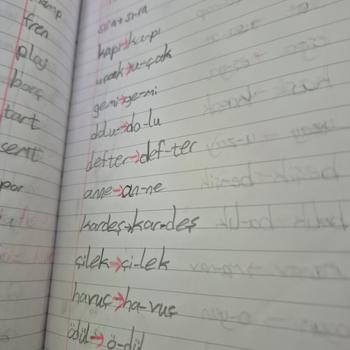 fren
plaj
borç
tart
sert
kapı→ka-pı
uçak→u-çak
gemi→ge-mi
dolu→do-lu
defter→def-ter
anne→an-ne
kardeş→kar-deş
çilek→çi-lek
havuç→ha-vuç
ödül→ö-dül